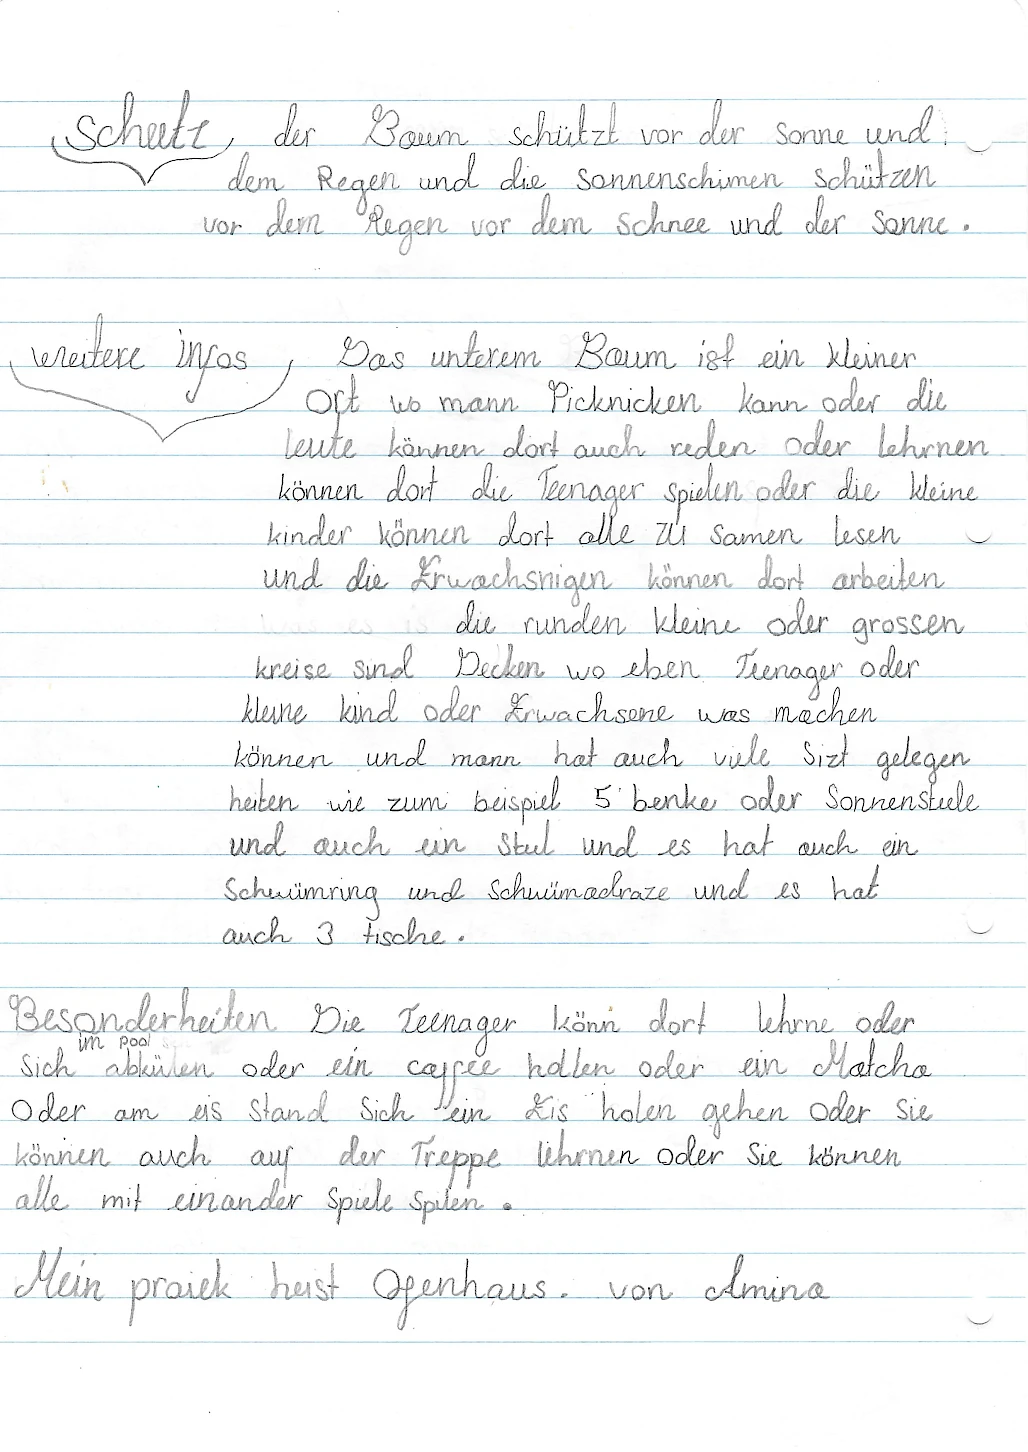 Schutz der Baum schützt vor der Sonne und
dem Regen und die sonnenschimen schützen
vor dem Regen vor dem schnee und der Sonne.
weitere infos Das unterem Baum ist ein kleiner
Ort wo mann Picknicken kann oder die
leute können dort auch reden oder lehrnen
können dort die Teenager spielen oder die kleine
kinder können dort alle zu samen lesen
und die Erwachsnigen können dort arbeiten
die runden kleine oder grossen
kreise sind Decken wo eben Teenager oder
kleine kind oder Erwachsene was machen
können und mann hat auch viele Sizt gelegen
heiten wie zum beispiel 5 benke oder Sonnenstuele
und auch ein Stul und es hat auch ein
Schwümring und Schwümadraze und es hat
auch 3 tische.
Besonderheiten Die Teenager könn dort lehrne oder
im pool
Sich abkülen oder ein caffee hollen oder ein Matcha
Oder am eis Stand Sich ein Eis holen gehen oder Sie
können auch auf der Treppe lehrnen oder Sie können
alle mit einander Spiele Spilen.
Mein praiek heist Ofenhaus. von Amina